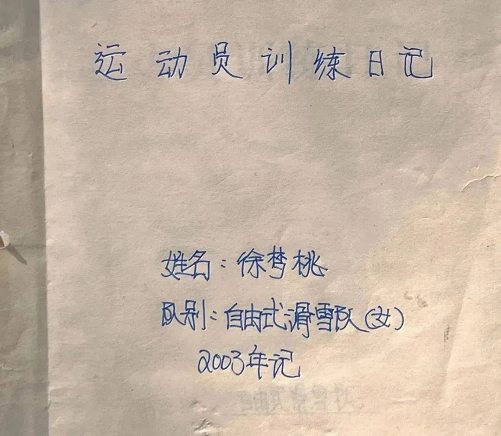 运动员训练日记
姓名：徐梦桃
队别：自由式滑雪队（女）
2003年记